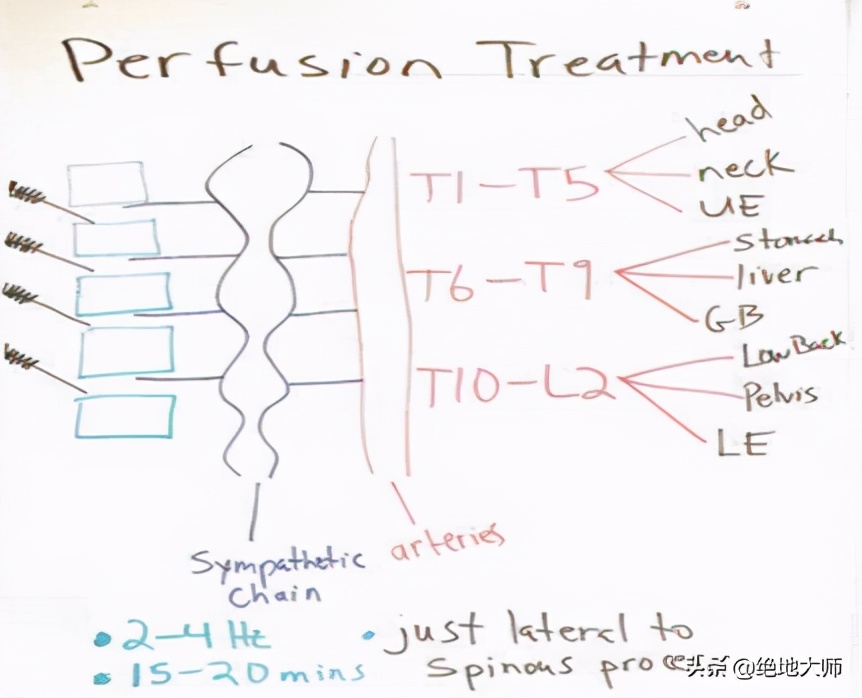 Perfusion Treatment
T1-T5
head
neck
UE
T6-T9
stomach
liver
GB
T10-L2
Low Back
Pelvis
LE
Sympathetic
chain
arteries
• 2-4 Hz
• 15-20 mins
• just lateral to
spinous
头条 @绝地大师